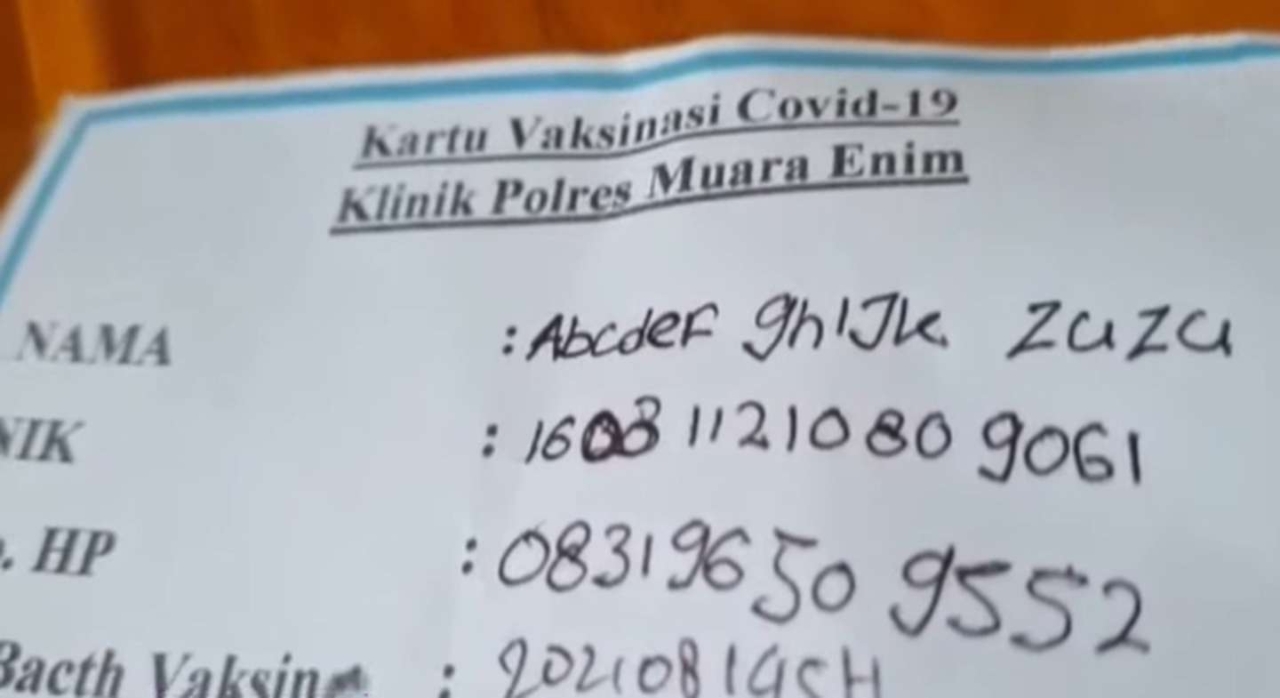 Kartu Vaksinasi Covid-19
Klinik Polres Muara Enim
NAMA : Abcdef ghIJk Zuzu
NIK : 1608 1121080 9061
. HP : 0831 9650 9552
Bacth Vaksin :